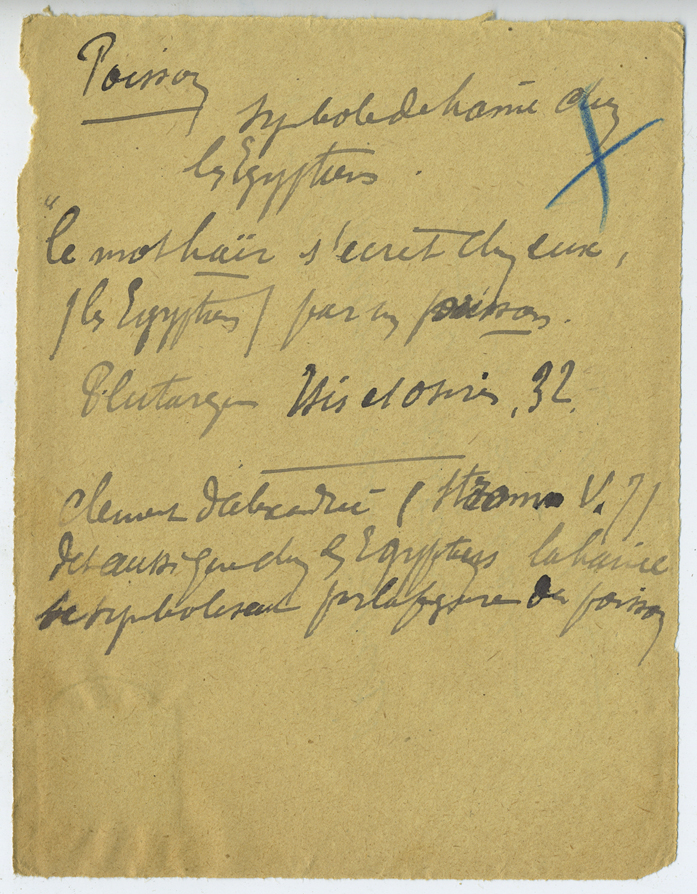 Poisson
symbole de haine chez
les Egyptiens .
"le mot haïr s'ecrit chez eux,
/les Egyptiens/ par un poisson.
Plutarque Isis et Osiris, 32.
Clement d'Alexandrie ( Strom V. 7)
dit aussi que chez les Egyptiens la haine
se symbolisait par la figure du poisson